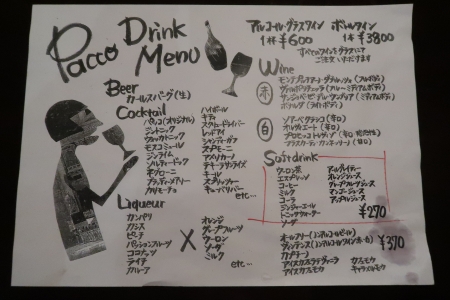 Pacco Drink Menu
アルコール・グラスワイン ボトルワイン
1杯¥600 1本¥3800
すべてのワインをグラスにて
ご注文いただけます
Beer
カールスバーグ(生)
Cocktail
パッコ(オリジナル)
ジントニック
ウォッカトニック
モスコミュール
ジンライム
ソルティードッグ
ネグローニ
ブラッディーメアリー
カリモーチョ
ハイボール
キティ
スクリュードライバー
レッドアイ
シャンディーガフ
スプモーニ
アメリカーノ
テキーラサンライズ
キール
スプリッツァー
キューバリバー
etc...
Liqueur
カンパリ
カシス
ピーチ
パッションフルーツ
ココナッツ
ライチ
カルーア
×
オレンジ
グレープフルーツ
ウーロン
ソーダ
ミルク
etc...
Wine
赤
白
ソアーベクラシコ(辛口)
Softdrink
ウーロン茶
エスプレッソ
コーヒー
ミルク
コーラ
ジンジャーエール
トニックウォーター
ソーダ
アールグレイティー
オレンジジュース
グレープフルーツジュース
マンゴージュース
アップルジュース
¥270
オールフリー(ノンアルコールビール)
カプチーノ
¥370